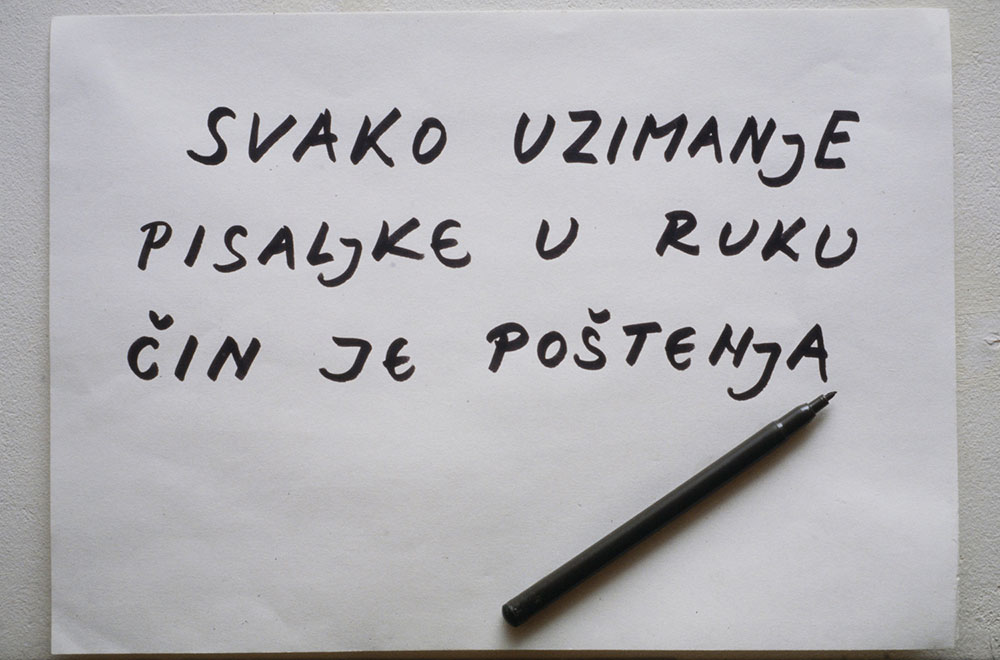 SVAKO UZIMANJE
PISALJKE U RUKU
ČIN JE POŠTENJA